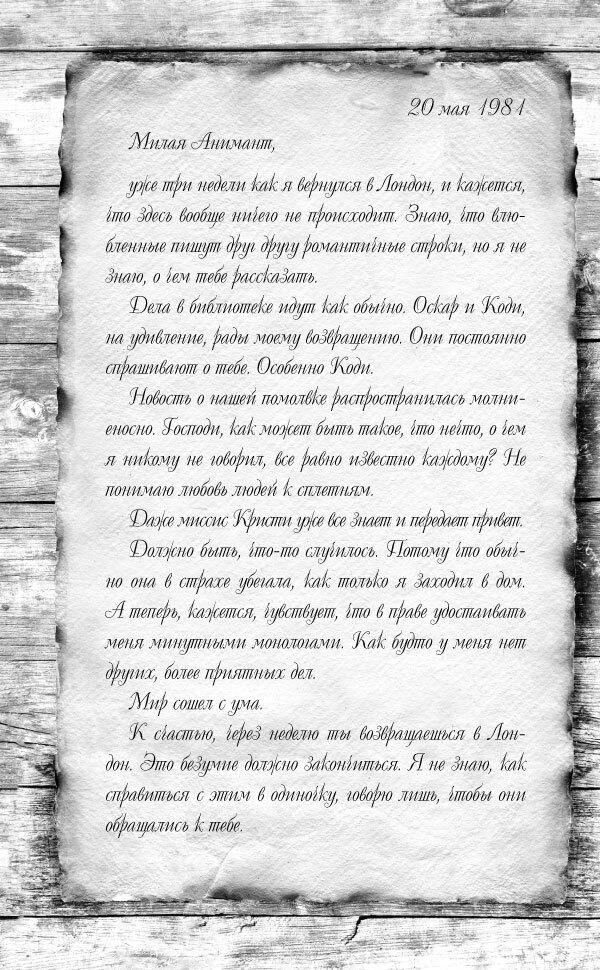 20 мая 1981
Милая Анимант,
уже три недели как я вернулся в Лондон, и кажется,
что здесь вообще ничего не происходит. Знаю, что влю-
бленные пишут друг другу романтичные строки, но я не
знаю, о чем тебе рассказать.
Дела в библиотеке идут как обычно. Оскар и Коди,
на удивление, рады моему возвращению. Они постоянно
спрашивают о тебе. Особенно Коди.
Новость о нашей помолвке распространилась молни-
еносно. Господи, как может быть такое, что нечто, о чем
я никому не говорил, все равно известно каждому? Не
понимаю любовь людей к сплетням.
Даже миссис Кристи уже все знает и передает привет.
Должно быть, что-то случилось. Потому что обыч-
но она в страхе убегала, как только я заходил в дом.
А теперь, кажется, чувствует, что в праве удостаивать
меня минутными монологами. Как будто у меня нет
других, более приятных дел.
Мир сошел с ума.
К счастью, через неделю ты возвращаешься в Лон-
дон. Это безумие должно закончиться. Я не знаю, как
справиться с этим в одиночку, говорю лишь, чтобы они
обращались к тебе.